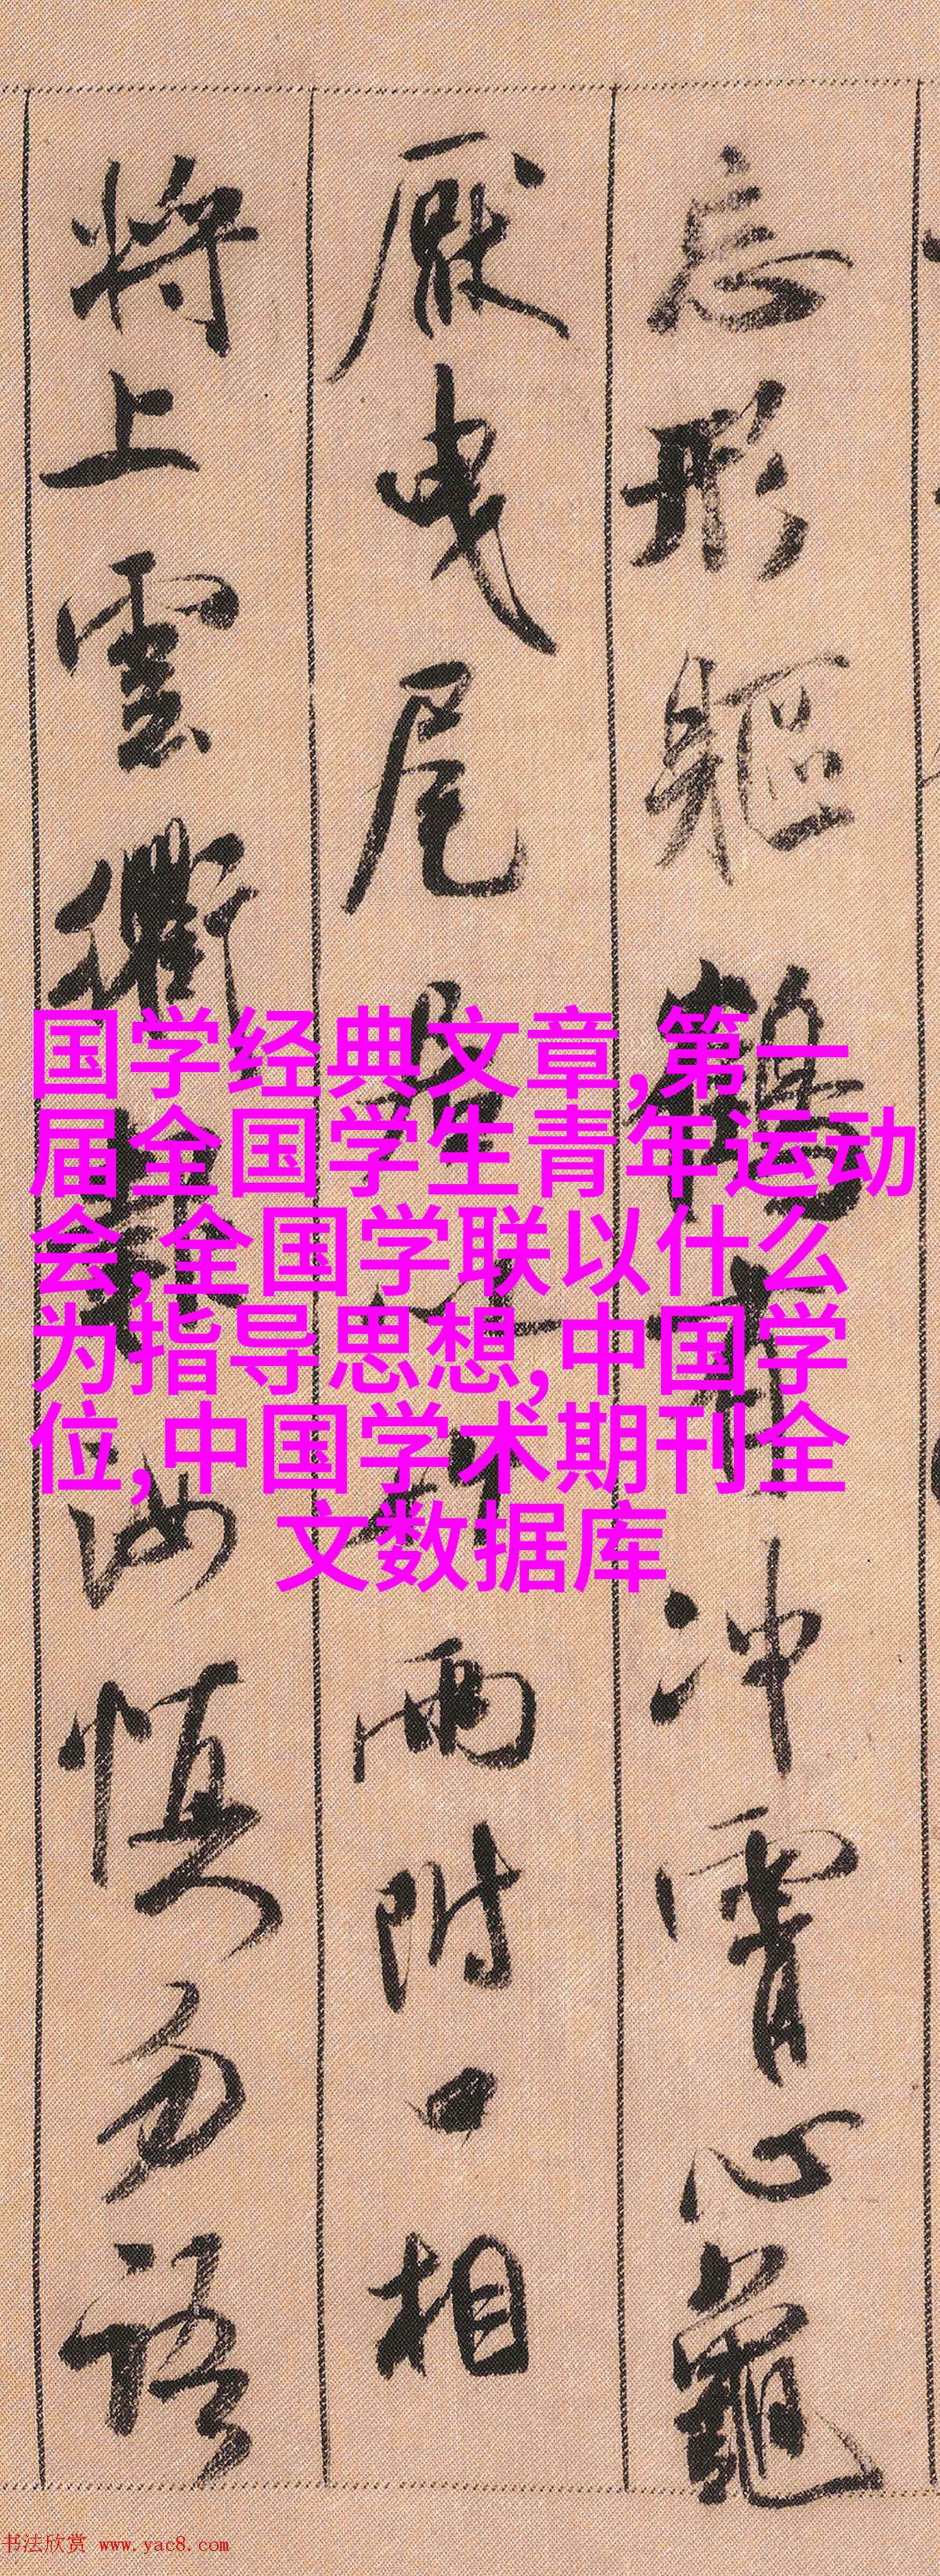 忘形軀鶴有沖霄心龜
厭曳尾居以竹兩附口相
將上雲衢報汝慎勿語
国学经典文章,第一
届全国学生青年运动
会,全国学联以什么
为指导思想,中国学
位,中国学术期刊全
文数据库
书法欣赏 www.yac8.com